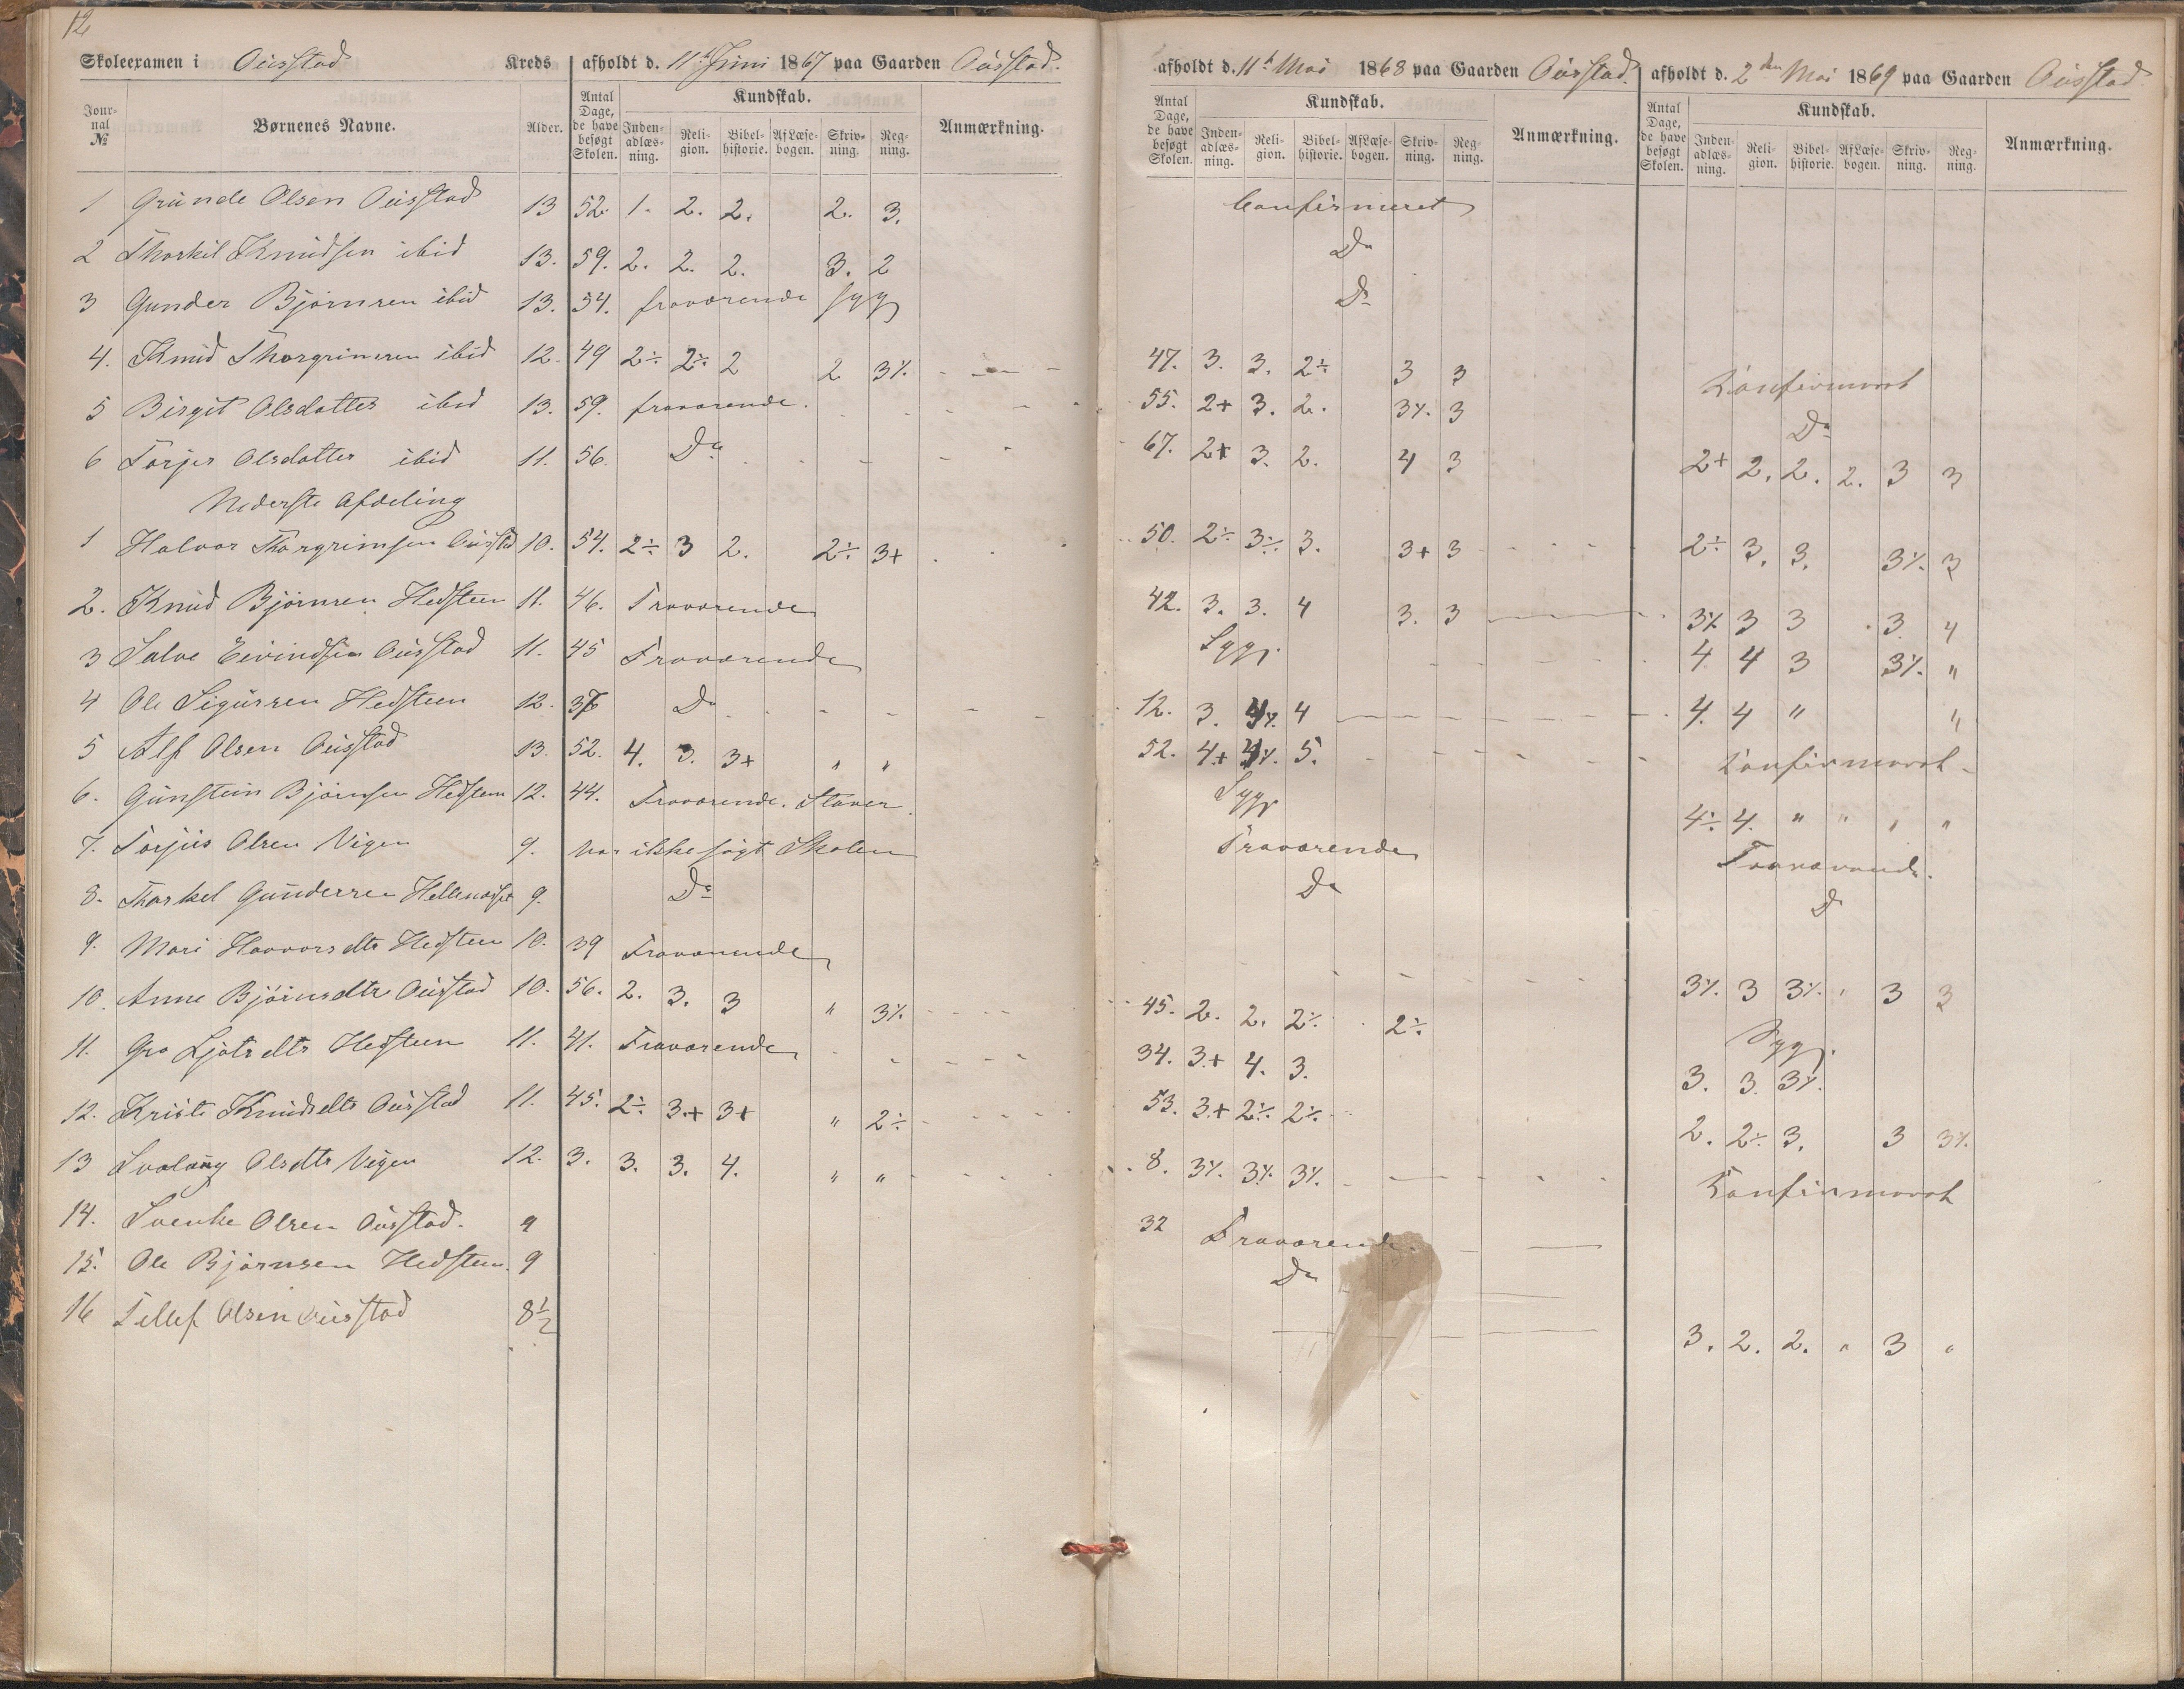 12
Skoleexamen i Øusstad Kreds afholdt d. 11t Juni 1867 paa Gaarden Øusstad. afholdt d. 11t Mai 1868 paa Gaarden Øusstad. afholdt d. 2den Mai 1869 paa Gaarden Øusstad.
Jour-nal № Børnenes Navne. Alder. Antal Dage, de have besøgt Skolen. Kundskab. Inden-adlæs-ning. Reli-gion. Bibel-historie. Af Læse-bogen. Skriv-ning. Reg-ning. Anmærkning. Antal Dage, de have besøgt Skolen. Kundskab. Inden-adlæs-ning. Reli-gion. Bibel-historie. Af Læse-bogen. Skriv-ning. Reg-ning. Anmærkning. Antal Dage, de have besøgt Skolen. Kundskab. Inden-adlæs-ning. Reli-gion. Bibel-historie. Af Læse-bogen. Skriv-ning. Reg-ning. Anmærkning.
1 Gunde Olsen Øusstad 13 52. 1. 2. 2. 2. 3. Confirmeret
2 Thorkil Knudsen ibid 13. 59. 2. 2. 2. 3. 2 Do
3 Gunder Bjørnsen ibid 13. 54. fraværende syg Do
4. Knud Thorgrimsen ibid 12. 49 2÷ 2÷ 2 2 3% 47. 3. 3. 2÷ 3 3 Konfirmeret
5 Birgit Olsdatter ibid 13. 59. fraværende. 55. 2+ 3. 2. 3%. 3 Do
6 Torjer Olsdatter ibid 11. 56. Do 67. 2+ 3. 2. 4 3 2+ 2. 2. 2. 3 3
Nederste Afdeling
1 Halvor Thorgrimsen Øusstd 10. 54. 2÷ 3 2. 2÷ 3+ 50. 2÷ 3÷ 3. 3+ 3 2÷ 3. 3. 3%. 3
2. Knud Bjørnsen Hedsteen 11. 46. Fraværende 42. 3. 3. 4 3. 3 3% 3 3 3. 4
3 Salve Eivindsen Øusstad 11. 45 Fraværende Syg. 4. 4 3 3%. "
4 Ole Sigursen Hedsteen 12. Do 12. 3. 4%. 4 4. 4 " "
5 Alf Olsen Øusstad 13. 52. 4. 3. 3+ " " 52. 4+ 4%. 5. Konfirmeret
6. Gunstein Bjørnsen Hedsteen 12. 44. Fraværende. Syg 4÷ 4. " " " "
7. Torjus Olsen Vigen 9. har ikke søgt Skolen Fraværende Fraværende.
8. Thorkel Gundersen 9. Do Do Do
9. Mari Havvorsdtr Hedsteen 10. 39 Fraværende 3%. 3 3%. " 3 3
10. Anne Bjørnsdtr Øusstad 10. 56. 2. 3. 3 " 3%. 45. 2. 2. 2%. 2÷ Syg.
11. Gro Ljotsdtr Hedsteen 11. 41. Fraværende 34. 3+ 4. 3. 3. 3. 3%.
12. Kristi Knudsdtr Øusstad 11. 45. 2÷ 3+ 3+ " 2÷ 53. 3+ 2%. 2%. 2. 2÷ 3. 3 3%.
13 Svalaug Olsdtr Vigen 12. 3. 3. 3. 4. " " 8. 3%. 3%. 3%. Konfirmeret
14. Svenke Olsen Øusstad. 9 32 Fraværende.
15. Ole Bjørnsen Hedsteen. 9 Do
16 Tellef Olsen Øusstad 8½ 3. 2. 2. " 3 "